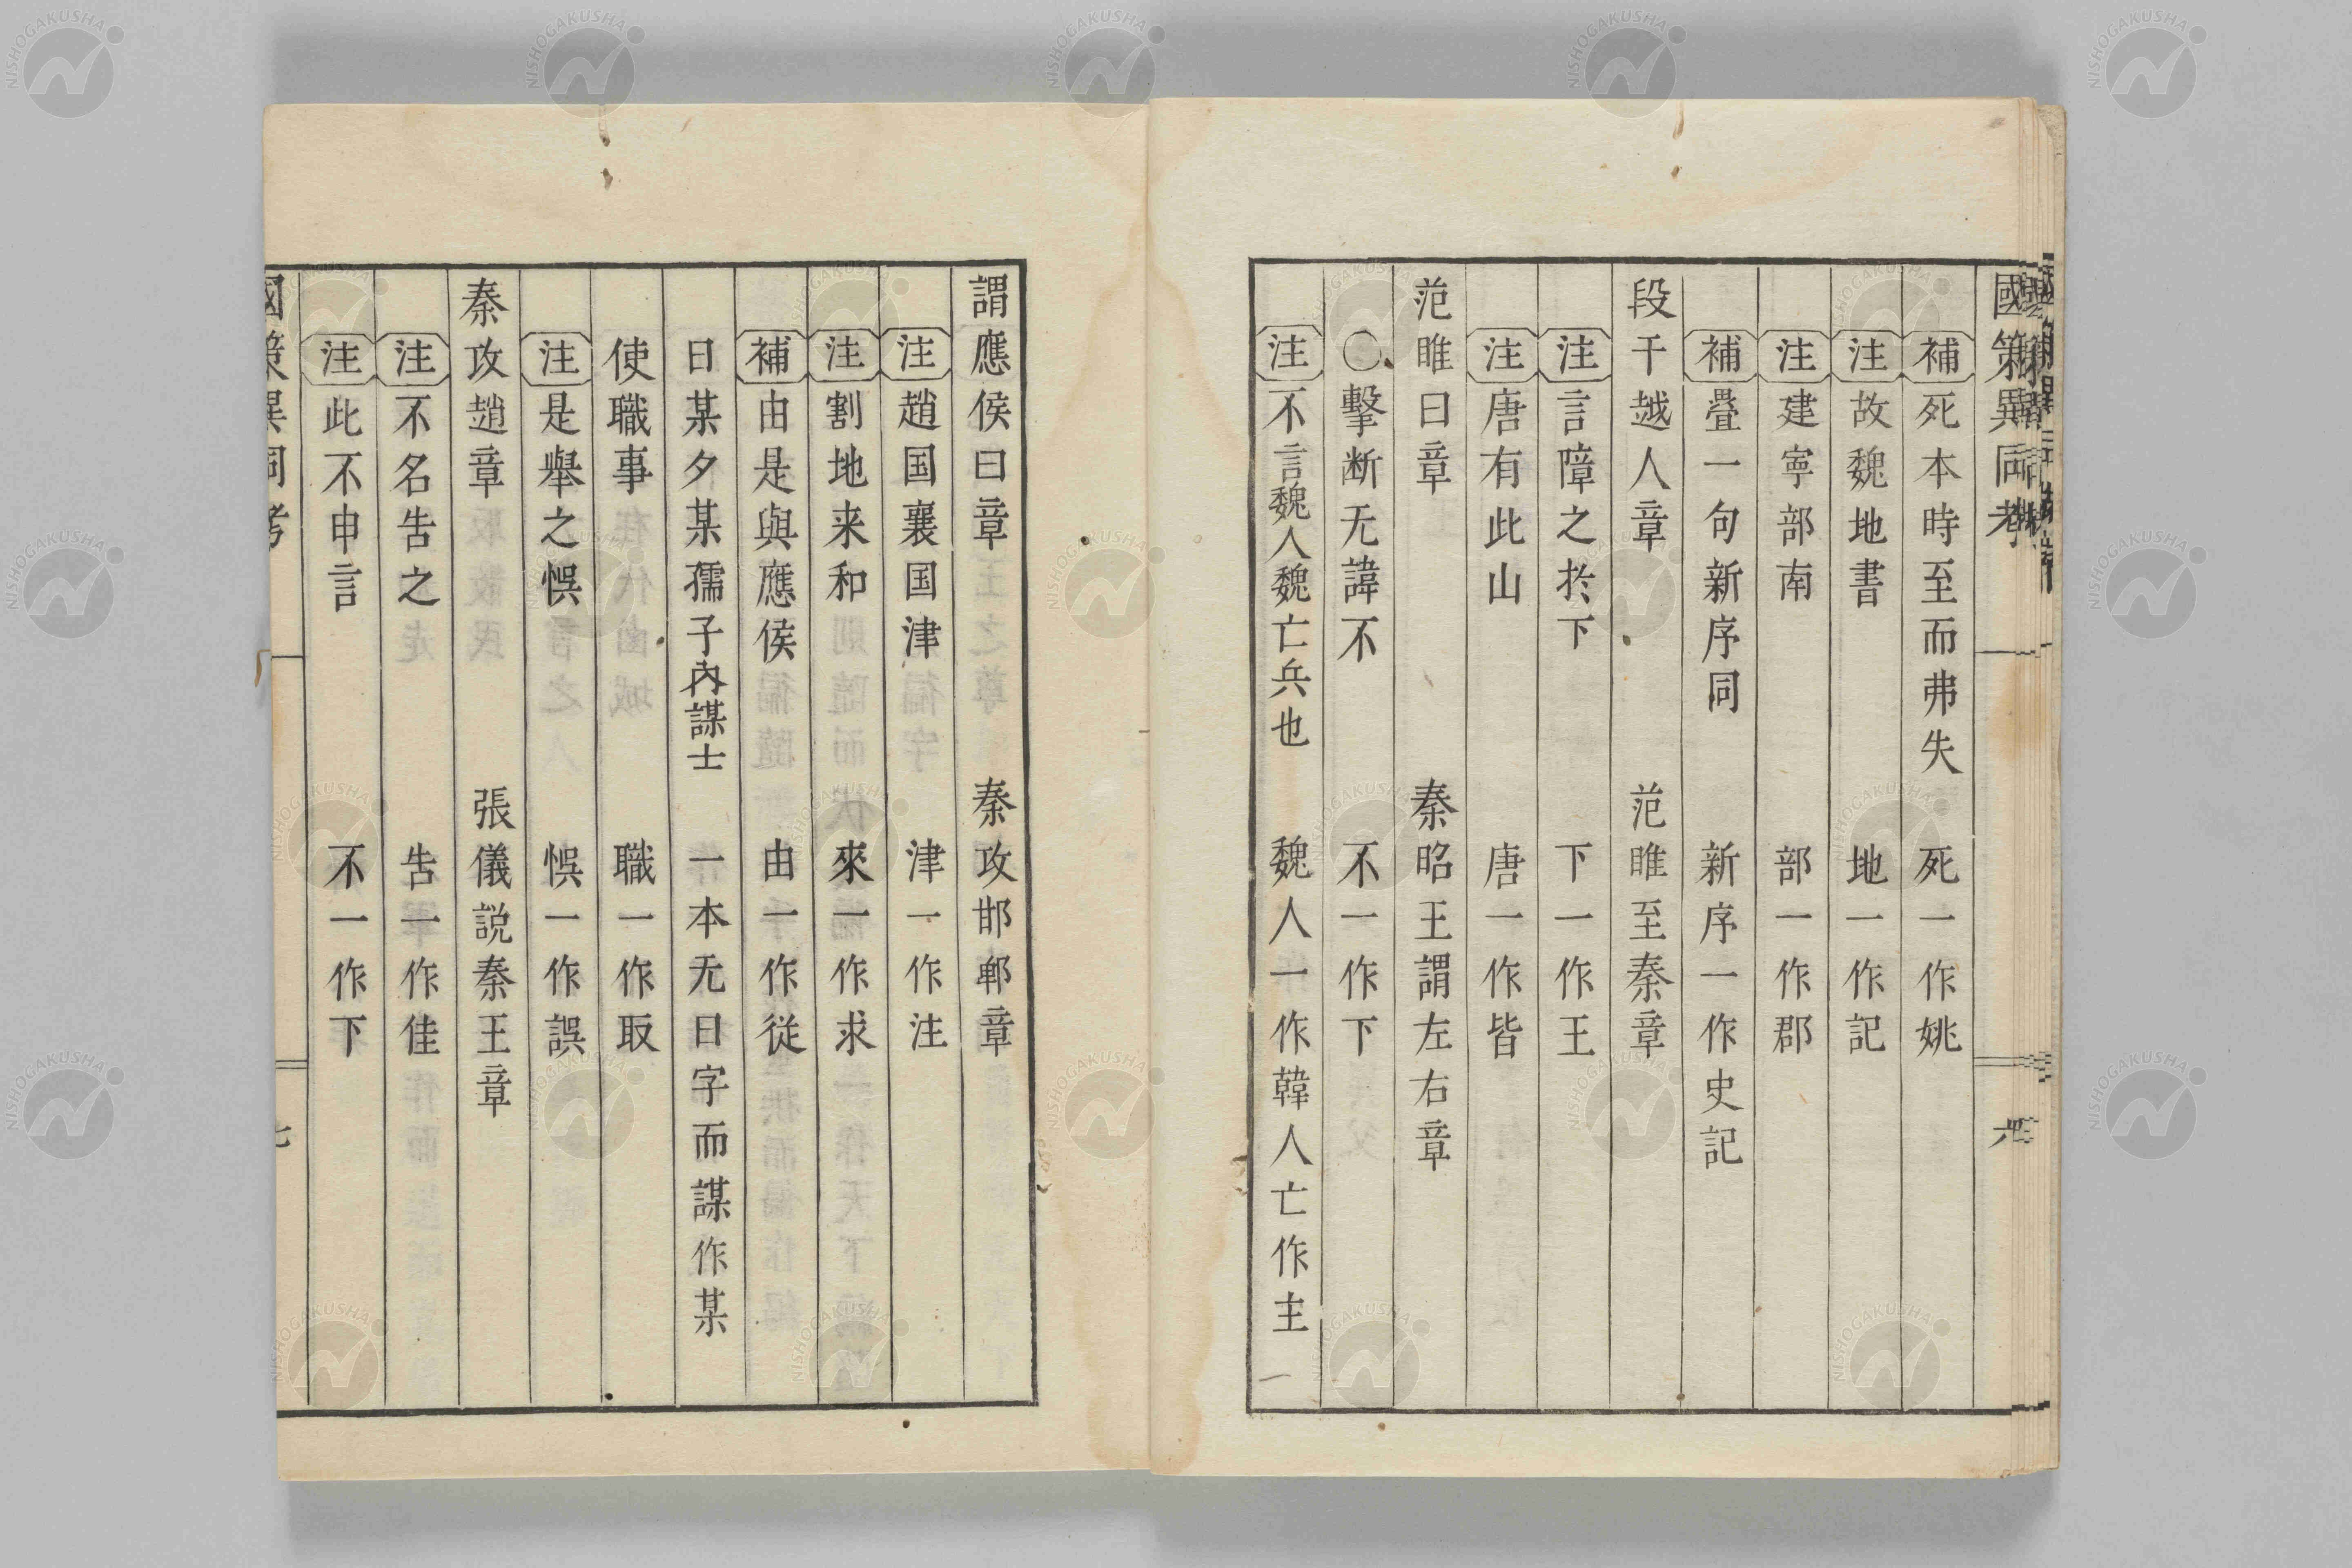 國策異同考
補 死本時至而弗失 死一作姚
注 故魏地書 地一作記
注 建寧部南 部一作郡
補 疊一句新序同 新序一作史記
段干越人章 范睢至秦章
注 言障之於下 下一作王
注 唐有此山 唐一作皆
范睢曰章 秦昭王謂左右章
〇擊断无諱不 不一作下
注 不言魏人魏亡兵也 魏人一作韓人亡作主
謂應侯曰章 秦攻邯鄲章
注 趙国襄国津 津一作注
注 割地来和 來一作求
補 由是與應侯 由一作從
曰某夕某孺子內謀士 一本无曰字而謀作某
使職事 職一作取
注 是舉之悞 悞一作誤
秦攻趙章 張儀説秦王章
注 不名告之 告一作佳
注 此不申言 不一作下
國策異同考 七
NISHOGAKUSHA